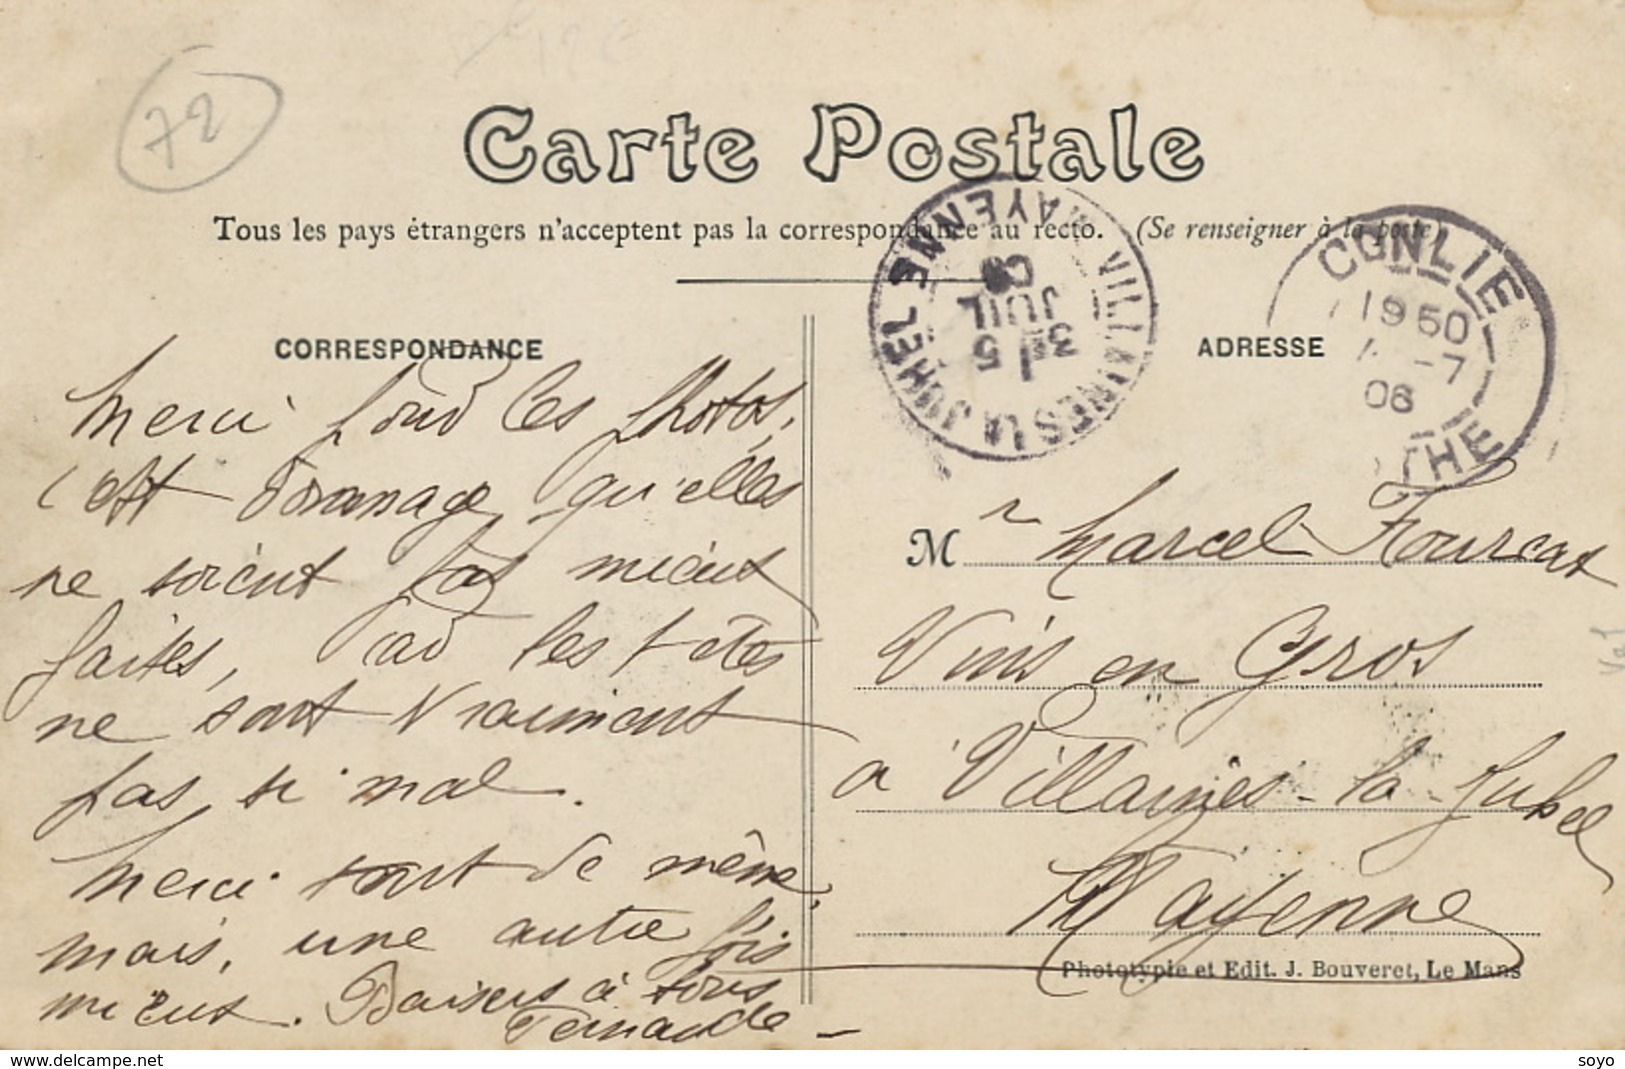 72
Carte Postale
Tous les pays étrangers n'acceptent pas la correspondance au recto. (Se renseigner à la poste)
VILLAINES LA JUHEL MAYENNE
3E 5
JUIL
06
CONLIE
1950
-7
06
THE
CORRESPONDANCE
Merci pour les photos,
c'est dommage qu'elles
ne soient pas mieux
faites, car les têtes
ne sont vraiment
pas si mal.
Merci tout de même,
mais, une autre fois
mieux. Baisers à tous
Fernande
ADRESSE
Mr Marcel Fourcat
Vins en Gros
a Villaines-la-Juhel
Mayenne
Phototypie et Edit. J. Bouveret, Le Mans
www.delcampe.net
soyo